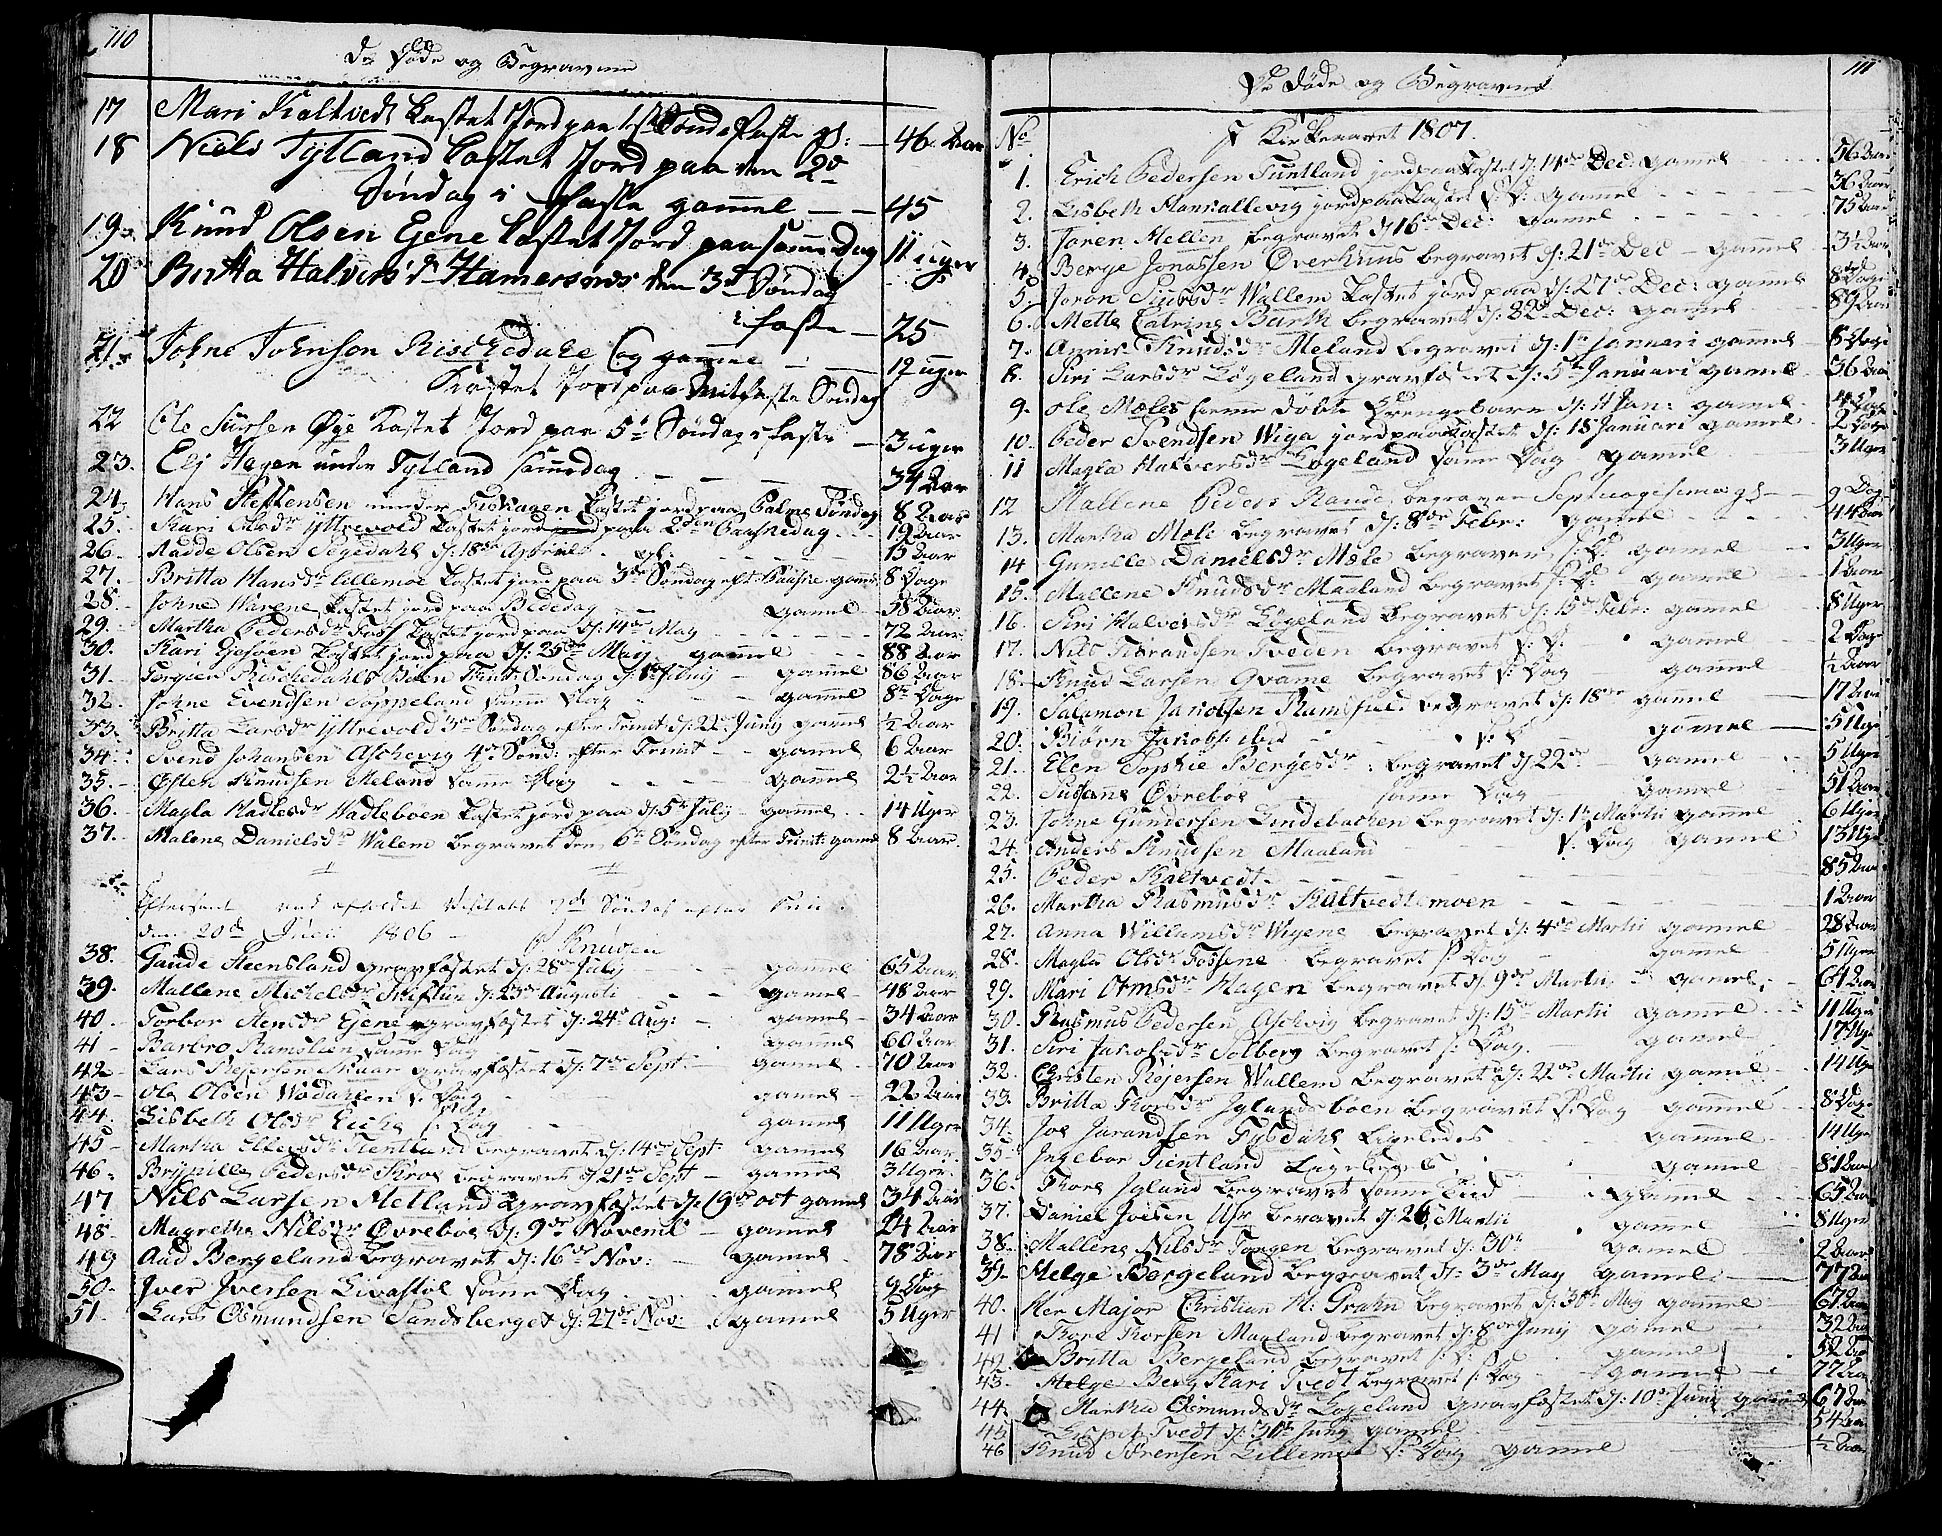 110
De Døde og Begravne
17 Mari Kaltvedt kastet Jord paa 1ste Sønd: Faste gl: — 46 Aar
18 Niels Tytland kastet Jord paa den 2de
Søndag i Faste gamel — — 45
19 Knud Olsen Egene kastet Jord paa samme dag 11 uger
20 Britta Halvorsdr Hamersmes den 3de Søndag
i Faste — 25
21 Johne Johnson Rischedahl og gammel — 12 uger
kastet Jord paa Mitfaste Søndag
22 Ole Siursen Øye kastet Jord paa 5te Søndag i Faste — 3 uger
23. Elj Hagen under Tytland samme dag — — 34 Aar
24. Hans Steffensen under Fiskaaen kastet jord paa Palme Søndag 8 Aar
25. Kari Olsdr Yttrevold kastet jord paa 2den Paaskedag 19 Aar
26. Aadde Olsen Segedahl d: 18de Aprili gl. 15 Aar
27. Britta Hansdr Lillemoe kastet jord paa 3de Søndag eft: Paaske gamel 8 Dage
28. Johne Warene kastet jord paa Bededag gamel 58 Aar
29. Martha Pedersdr Foss kastet jord paa d: 14de May 72 Aar
30. Kari Gosven kastet jord paa d: 25de Maij gammel 88 Aar
31. Torgier Rischedahls Bøen Trinit: Søndag d: 1ste Junij gammel 86 Aar
32. Johne Evendsen Toppeland samme Dag gammel 8te Dage
33. Britta Larsdr Yttrevold 3de Søndag efter Trinit d: 22de Junij gamel ½ Aar
34. Svend Johansen Aschevig 4de Sønd: efter Trinit — gamel 6 Aar
35. Østen Knudsen Meland samme Dag gammel 2½ Aar
36. Magla Hadlesdr Hadlebøen kastet jord paa d: 5te July gammel 14 Uger
37. Malene Danielsdr Walem begravet den 6te Søndag efter Trinit: gamel 8 Aar
Efterseet ved afholdt Visitatz 7de Søndag efter Trin:
den 20de Julii 1806
38. Gaude Steensland gravfæstet d: 28de July gamel 65 Aar
39. Mallene Michelsdr d: 25de Augusti gamel 48 Aar
40. Torbor Stensdr Egene gravfæstet d: 24de Aug: gamel 34 Aar
41 Barbro Ramslien samme Dag gammel 60 Aar
42 Lars Reiersen Skaar gravfæstet d: 7de Sept. gamel 70 Aar
43 Ole Olsen Wodahlen s: Dag gamel 22 Aar
44. Lisbeth Olsdr Eiche s: Dag gamel 11 Uger
45 Martha Ellefsdr Tientland begravet d: 14de Sept gammel 16 Aar
46. Birgitte Pedersdr Skroe begravet d: 21de Sept gammel 3 Uger
47 Nils Larsen Hetland gravfæstet d: 19de oct gamel 34 Aar
48. Magretha Nilsdr Øvreboe d: 9de Novemb gammel 24 Aar
49 Aad Bergeland begravet d: 16de Nov: gamel 78 Aar
50. Iver Iversen Livastøl samme Dag gammel 9 Dag
51. Lars Osmundsen Sandsberget d: 27de Nov: gammel 5 Uger
111
De Døde og Begravne
No I Kirkeaaret 1807.
1. Erich Pedersen Tuntland jordpaakastet d: 14de Dec: gamel 56 Aar
2. Lisbeth Hankallevig jordpaakastet s: D: gamel 36 Aar
3. Toren Mellen begravet d 16de Dec: gamel 75 Aar
4. Berge Jonassen Øverhuus begravet d: 21de Dec — gammel 3½ Aar
5. Joron Siursdr Wallem kastet jord paa d: 27de Dec: gammel 8te Dage
6. Mette Catrine Barth begravet d: 22de Dec: gamel 89 Aar
7. Annis Knudsdr Meland begravet d: 1te Januari gammel 8 Dage
8. Siri Larsdr Løgeland gravfæstet d: 5te Januari gamel 56 Aar
9. Ole Mæles hiemme døbte Drengebarn d: 11 Jan: gamel
10. Peder Svendsen Wiga jordpaakastet d: 18 Januari gamel 2 Dage
11 Magla Halversdr Løgeland samme Dag gamel 3 Uger
12 Mallene Peders Rande begraven Septuagesima gl 9 Dag
13. Martha Mæle begravet d: 8de Febr: gamel 44 Aar
14 Gunille Danielsdr Mæle begraven s: D: gamel 3 Uger
15. Mallene Knudsdr Maaland begravet s: D: gamel 1 Aar
16. Siri Halversdr Løgeland begravet d: 15de Febr: gamel 8 Uger
17. Nils Tobrandsen Tveden begravet s: D: gamel 2 Dage
18. Knud Larsen Qvame begravet s: Dag gamel ½ Aar
19. Salamon Jacobsen Ramsfield begravet d: 18de gamel 17 Aar
20. Biørn Jakobs: ibid s: D gammel 5 Uger
21. Elen Sophie Bergesdr begravet d 22de gamel 5 Uger
22. Susanne Øvreboe samme Dag gamel 51 Aar
23. Johne Gundersen Lindebachen begravet d: 1te Martii gammel 6 Uger
24. Anders Knudsen Maaland s: Dag gamel 13 Uge
25. Peder Kaltvedt 85 Aar
26. Martha Rasmusdr Kaltvedtemoen 1 Aar
27. Anna Willumsdr Wigene begravet d: 4de Martii gamel 28 Aar
28. Magla Olsdr Fossene begravet s: Dag gamel 5 Uger
29. Mari Otmsdr Hagen begravet d: 9de Martii gamel 64 Aar
30. Rasmus Pedersen Aschvig begravet d: 15de Martii gamel 11 Uger
31. Siri Jakobsdr Solberg begravet s: Dag gamel 17 Uge
32. Christen Reijersen Wallem begravet d: 22de Martii gamel 14 Uge
33. Britta Thorsdr Jglandsboen begravet s: Dag gammel 8 Dage
34. Joe Jarandsen Fysdahl Ligeledes gammel 14 Uger
35. Ingebor Tientland Ligeledes gamel 81 Aar
36. Thore Jgland begravet samme Tiid gamel 65 Aar
37. Daniel Joesen begravet d: 26 Martii gamel 8 Uger
38. Mallene Nilsdr Tangen begravet d: 30te gamel 2 Aar
39. Helge Bergeland begravet d: 3de May gamel 77 Aar
40. Her Major Christian H: Grahn begravet d: 30te May gammel 67 Aar
41 Thore Thorsen Maaland begravet d: 8de Junij gamel 32 Aar
42 Britta Bergeland begravet s: D: gamel 52 Aar
43. Helge Berg Kari Tvedt begravet s: Dag gammel 77 Aar
44. Martha Osmundsdr Løgeland gravfæstet d: 10de Junij gamel 67 Aar
45 Lispet Tvedt d: 30te Junij gammel 54 Aar
46 Knud Sørensen Lillemoe s: Dag gamel ½ Aar